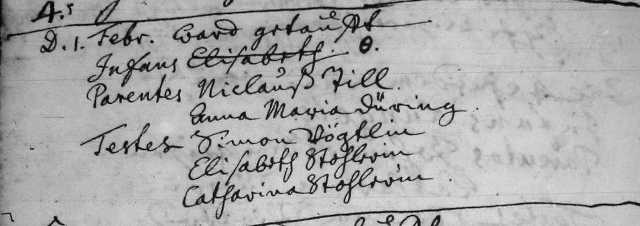 A.s
D. 1. Febr. ward getaufft
Infans Elisabeth. θ.
Parentes Niclauß Till.
Anna Maria Düring.
Testes Simon Vögtlin
Elisabeth Stohlerin
Catharina Stohlerin